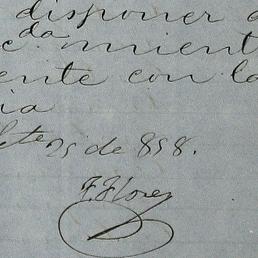 disponer
da
c. mient
ente con la
ia
25 de 858.
F. Flores